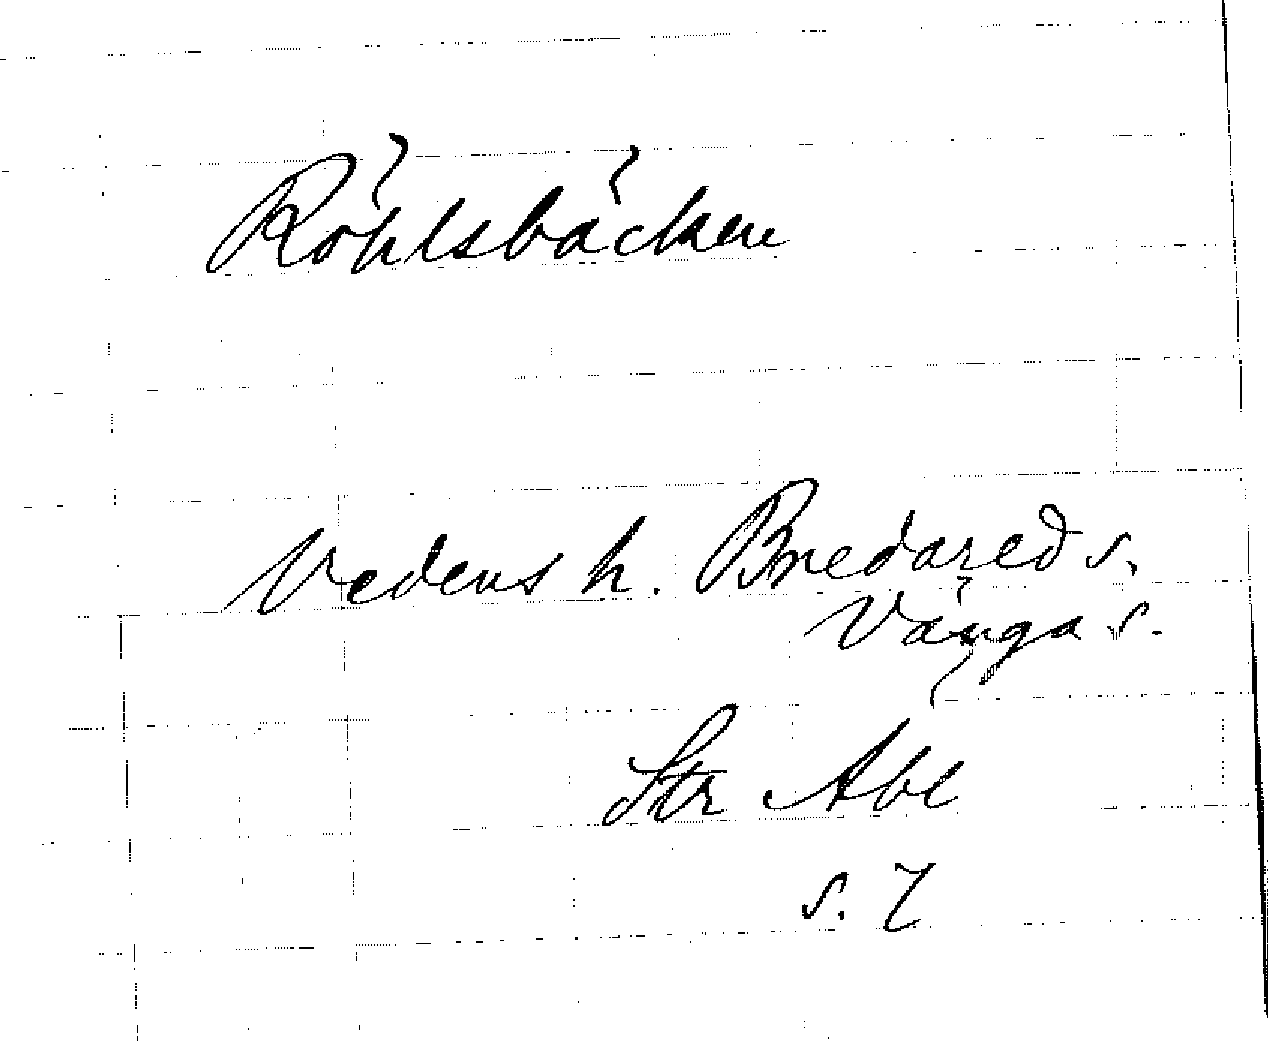 Röhlsbäcken
Vedens h. Bredareds s.
Vånga s.
Str Abl
s. 7